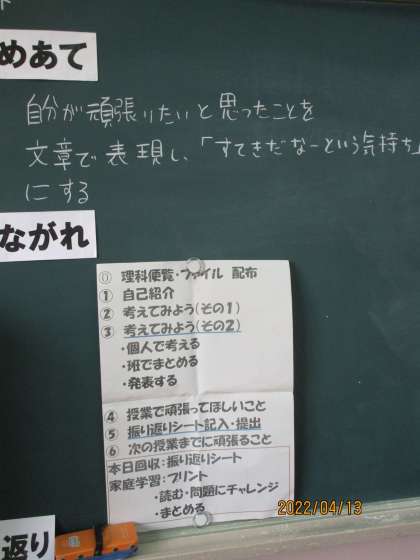 めあて
自分が頑張りたいと思ったことを
文章で表現し、「すてきだなーという気持ち」
にする
ながれ
⓪ 理科便覧・ファイル 配布
① 自己紹介
② 考えてみよう(その1)
③ 考えてみよう(その2)
・個人で考える
・班でまとめる
・発表する
④ 授業で頑張ってほしいこと
⑤ 振り返りシート記入・提出
⑥ 次の授業までに頑張ること
本日回収:振り返りシート
家庭学習:プリント
・読む・問題にチャレンジ
・まとめる
返り
2022/04/13